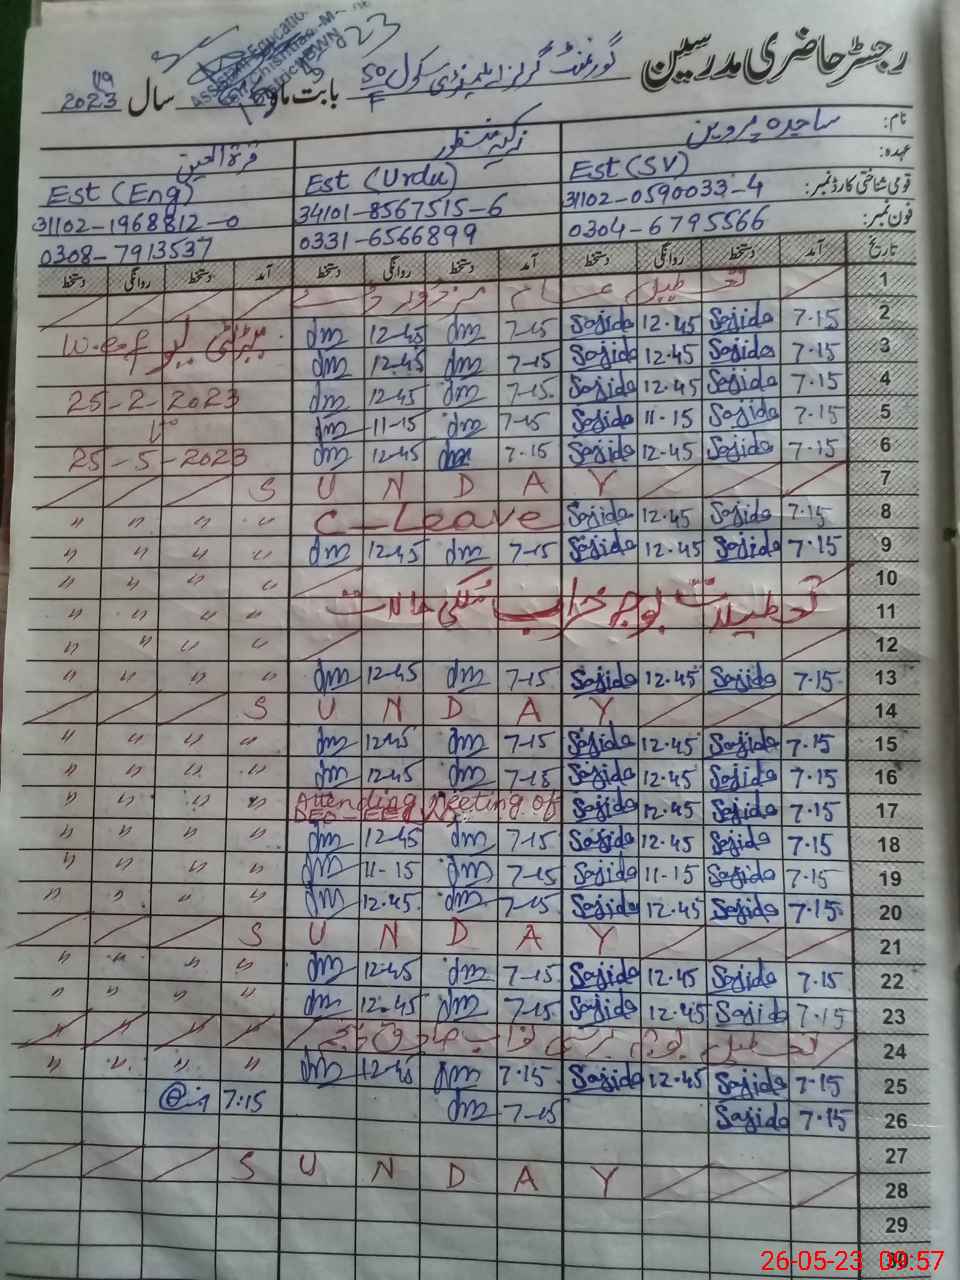 رجسٹر حاضری مدرسین
گورنمنٹ گرلز ایلیمنٹری سکول 50/F بابت ماہ سال 2023
نام: ساجدہ پروین زکیہ منظور قرۃ العین
عہدہ: Est (SV) Est (Urdu) Est (Eng)
قومی شناختی کارڈ نمبر: 31102-0590033-4 34101-8567515-6 31102-1968812-0
فون نمبر: 0304-6795566 0331-6566899 0308-7913537
تاریخ آمد دستخط روانگی دستخط آمد دستخط روانگی دستخط آمد دستخط روانگی دستخط
1 تعطیل
2 7.15 Sajida 12.45 Sajida 7-15 12-45
3 7.15 Sajida 12.45 Sajida 7-15 12.45 میٹرنٹی لیو w.e.f
4 7.15 Sajida 12.45 Sajida 7-15. 12-45 25-2-2023
5 7-15 Sajida 11-15 Sajida 7-15 11-15 تا
6 7-15 Sajida 12.45 Sajida 7.15 12.45 25-5-2023
7 S U N D A Y
8 7.15 Sajida 12.45 Sajida C-Leave " " " "
9 7.15 Sajida 12.45 Sajida 7-15 12-45 " " " "
10 " " " "
11 تعطیلات بوجہ خراب ملکی حالات " " " "
12 " " " "
13 7.15 Sajida 12.45 Sajida 7-15 12-45 " " " "
14 S U N D A Y
15 7.15 Sajida 12.45 Sajida 7-15 12-45 " " " "
16 7.15 Sajida 12.45 Sajida 7-15 12-45 " " " "
17 7.15 Sajida 12.45 Sajida Attending Meeting of " " " "
18 7.15 Sajida 12.45 Sajida 7-15 12-45 " " " "
19 7-15 Sajida 11-15 Sajida 7-15 11-15 " " " "
20 7.15 Sajida 12.45 Sajida 7-15 12.45 " " " "
21 S U N D A Y
22 7.15 Sajida 12.45 Sajida 7-15 12-45 " " " "
23 7-15 Sajida 12.45 Sajida 7-15 12.45 " " " "
24 تعطیل " " " "
25 7-15 Sajida 12.45 Sajida 7.15 12-45 " " " "
26 7.15 Sajida 7-15 7:15
27
28 S U N D A Y
29
30
26-05-23 09:57